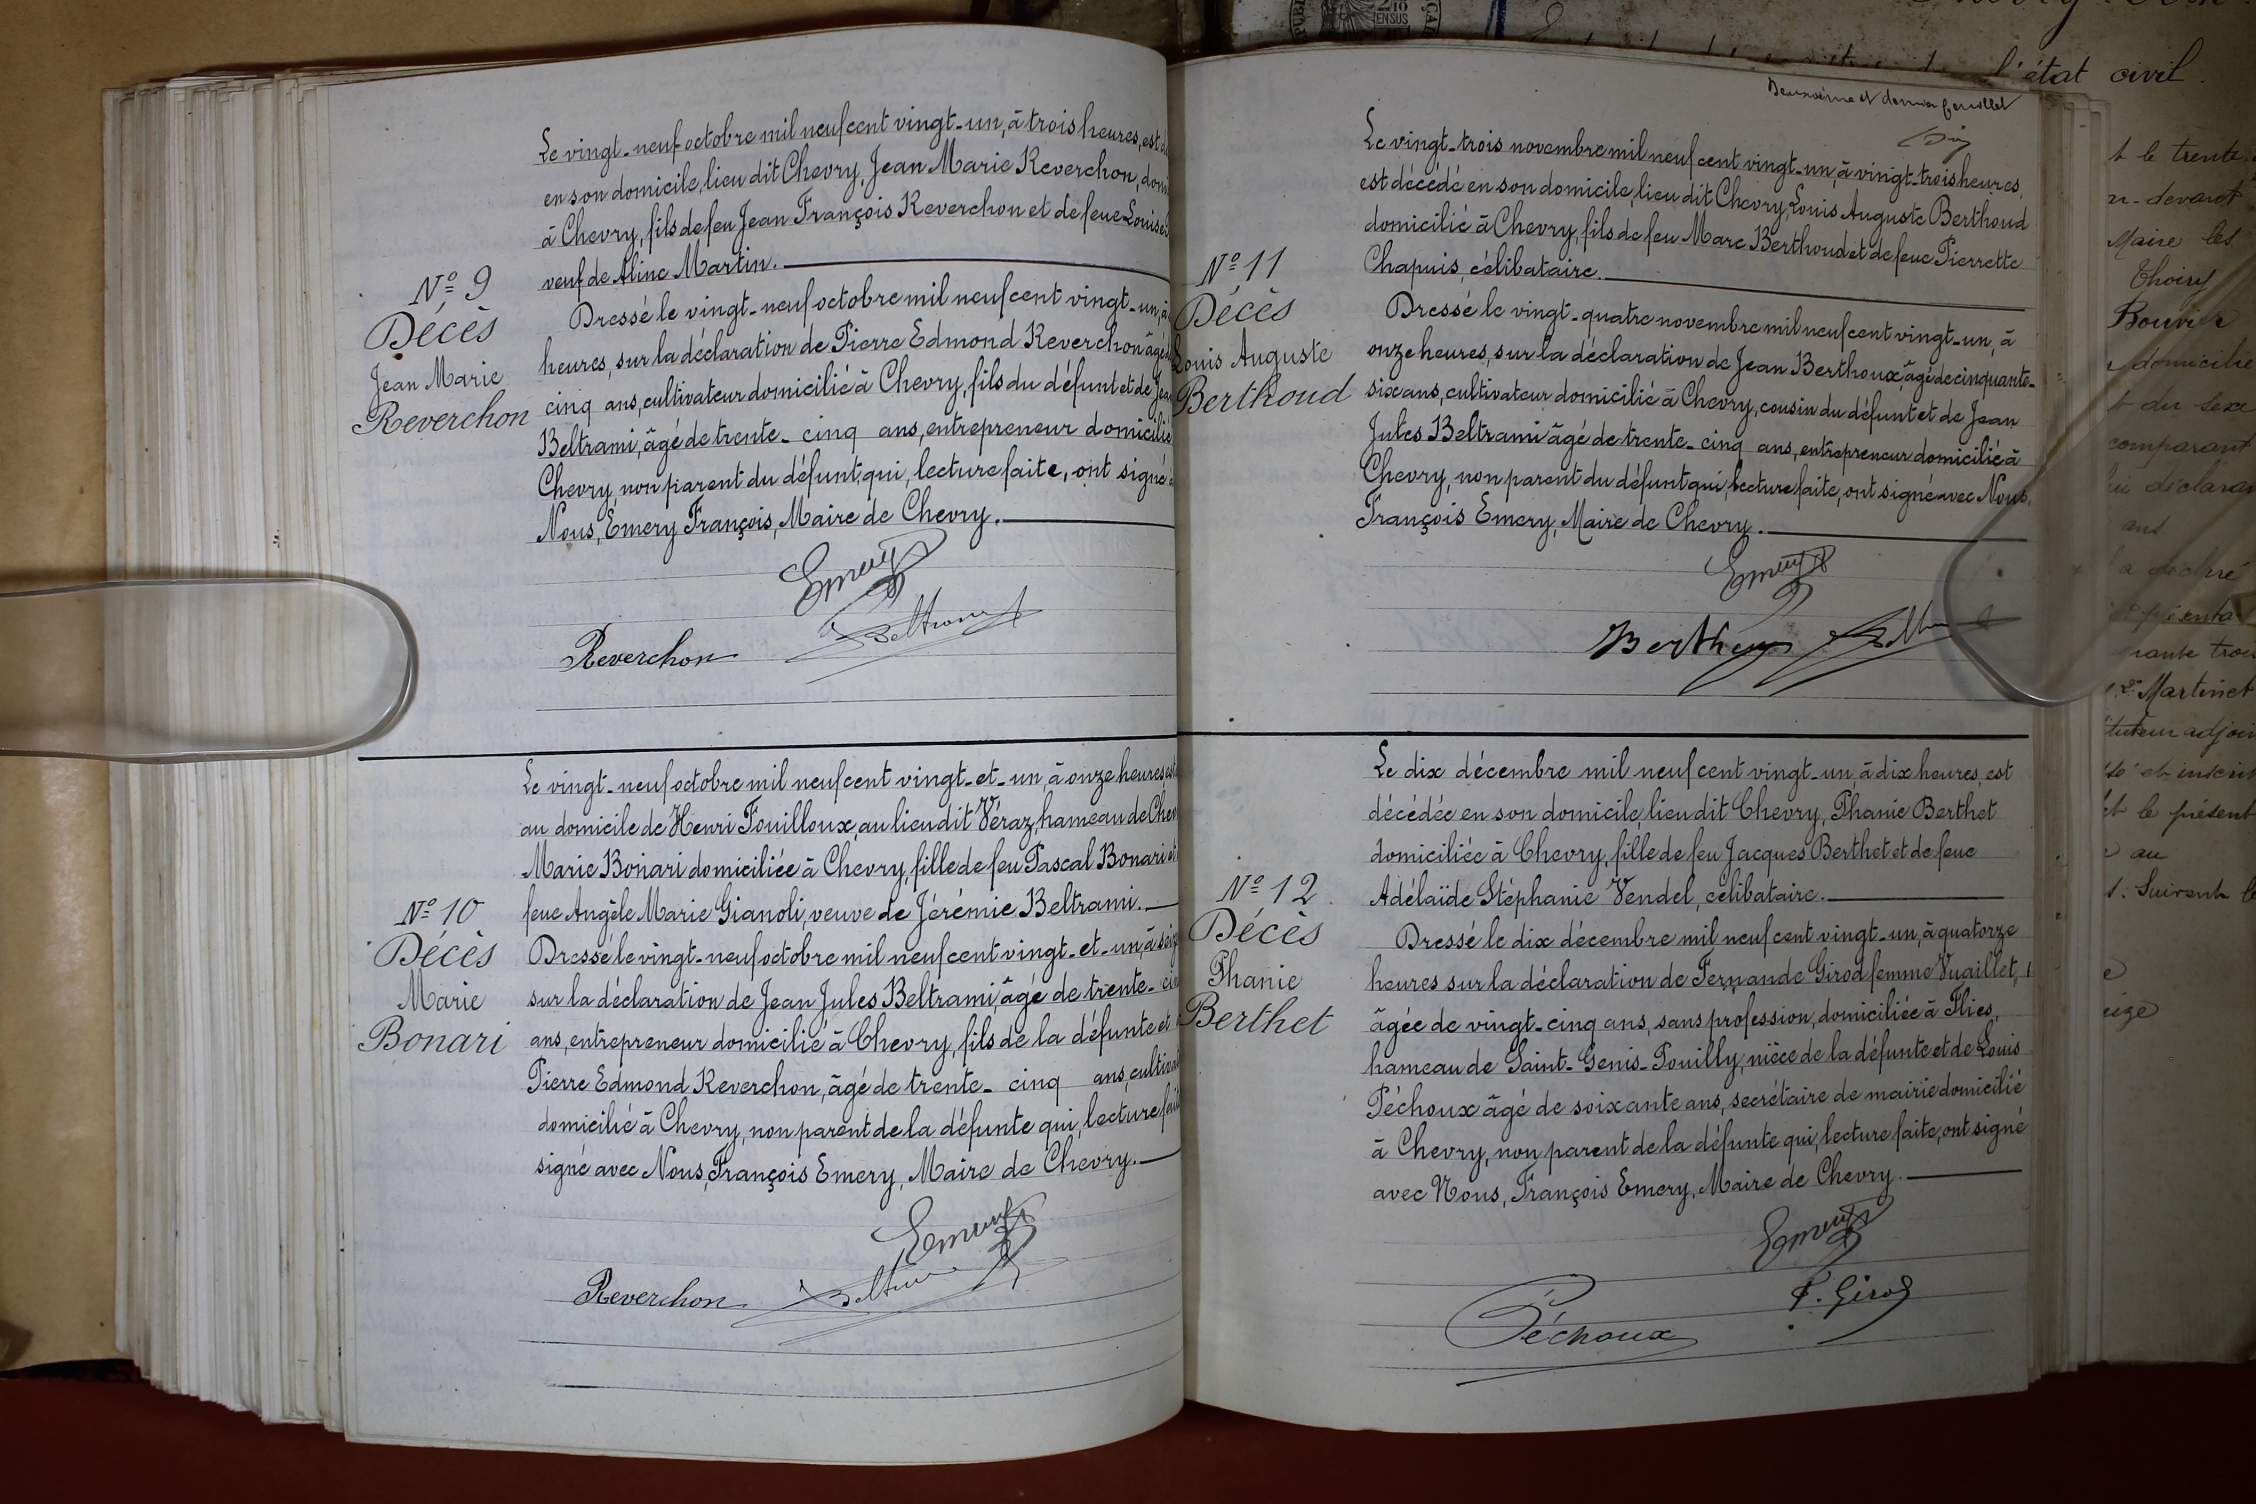 Le vingt-neuf octobre mil neuf cent vingt-un, à trois heures, est
en son domicile, lieu dit Chevry, Jean Marie Reverchon,
à Chevry, fils de feu Jean François Reverchon et de feue Louise
veuf de Aline Martin.
Nº 9
Décès
Jean Marie
Reverchon
Dressé le vingt-neuf octobre mil neuf cent vingt-un, à
heures, sur la déclaration de Pierre Edmond Reverchon âgé
cinq ans, cultivateur domicilié à Chevry, fils du défunt et de Jean
Beltrami, âgé de trente-cinq ans, entrepreneur domicilié
Chevry, non parent du défunt qui, lecture faite, ont signé
Nous, Emery François, Maire de Chevry.
Emery
Reverchon
Beltrami
Le vingt-neuf octobre mil neuf cent vingt-et-un, à onze heures, est
au domicile de Henri Fouilloux, au lieu dit Véraz, hameau de
Marie Bonari domiciliée à Chevry, fille de feu Pascal Bonari et
feue Angèle Marie Gianoli, veuve de Jérémie Beltrami.
Nº 10
Décès
Marie
Bonari
Dressé le vingt-neuf octobre mil neuf cent vingt-et-un, à
sur la déclaration de Jean Jules Beltrami, âgé de trente-
ans, entrepreneur domicilié à Chevry, fils de la défunte et
Pierre Edmond Reverchon, âgé de trente-cinq ans,
domicilié à Chevry, non parent de la défunte qui, lecture
signé avec Nous, François Emery, Maire de Chevry.
Emery
Reverchon
Beltrami
Deuxième et dernier feuillet
Le vingt-trois novembre mil neuf cent vingt-un, à vingt-trois heures,
est décédé en son domicile, lieu dit Chevry, Louis Auguste Berthoud
domicilié à Chevry, fils de feu Marc Berthoud et de feue Pierrette
Chapuis, célibataire.
Nº 11
Décès
Louis Auguste
Berthoud
Dressé le vingt-quatre novembre mil neuf cent vingt-un, à
onze heures, sur la déclaration de Jean Berthoux, âgé de cinquante-
six ans, cultivateur domicilié à Chevry, cousin du défunt et de Jean
Jules Beltrami âgé de trente-cinq ans, entrepreneur domicilié à
Chevry, non parent du défunt qui, lecture faite, ont signé avec Nous,
François Emery, Maire de Chevry.
Emery
Le dix décembre mil neuf cent vingt-un, à dix heures, est
décédée en son domicile, lieu dit Chevry, Phanie Berthet
domiciliée à Chevry, fille de feu Jacques Berthet et de feue
Adélaïde Stéphanie Vendel, célibataire.
Nº 12
Décès
Phanie
Berthet
Dressé le dix décembre mil neuf cent vingt-un, à quatorze
heures sur la déclaration de Fernande Girod femme Vuaillet,
âgée de vingt-cinq ans, sans profession, domiciliée à Flies,
hameau de Saint-Genis-Pouilly, nièce de la défunte et de Louis
Péchoux âgé de soixante ans, secrétaire de mairie domicilié
à Chevry, non parent de la défunte qui, lecture faite, ont signé
avec Nous, François Emery, Maire de Chevry.
Emery
F. Girod
Péchoux
l'état civil.
le trente
devant
Maire les
Thoiry
Bouvier
domicilié
du sexe
comparant
ans
a déclaré
Martinet
adjoint
le présent
au
Suivent